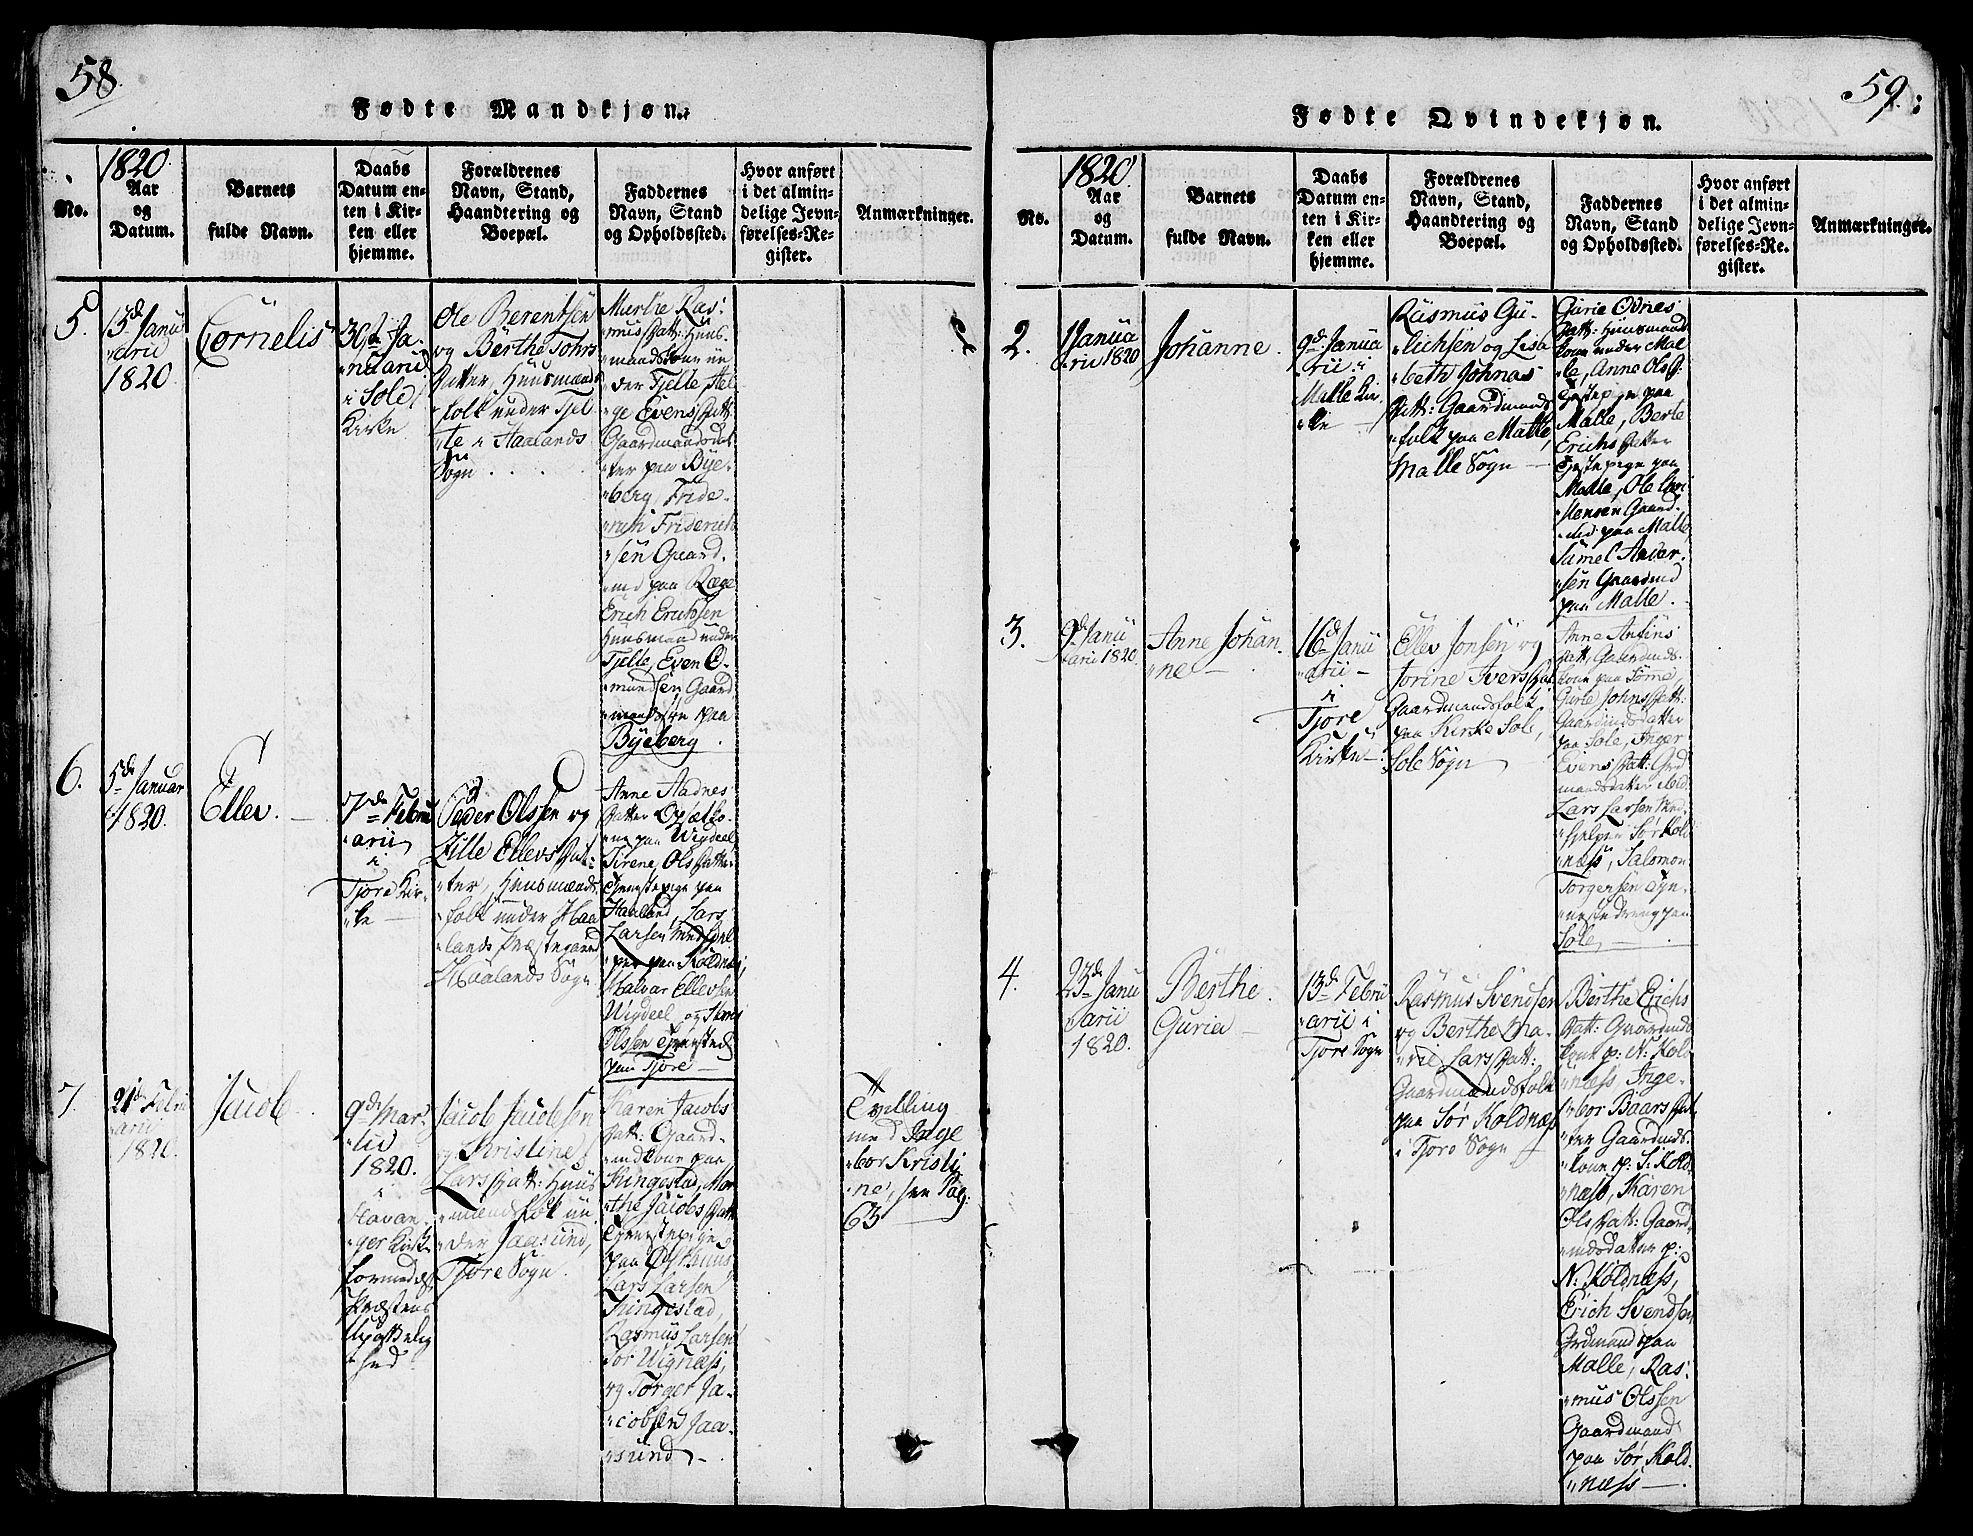 58.
Fødte Mandkjøn.
No.
1820.
Aar
og
Datum.
Barnets
fulde Navn.
Daabs
Datum en-
ten i Kir-
ken eller
hjemme.
Forældrenes
Navn, Stand,
Haandtering og
Boepæl.
Faddernes
Navn, Stand
og Opholdssted.
Hvor anført
i det almin-
delige Jevn-
førelses-Re-
gister.
Anmærkninger.
5.
1820.
Cornelis
30te Ja-
nuarii
i Sole
Kirke
Ole Berentsen
og Berthe Johns
Datter, Huusmænds
folk under Tjel
te i Haalands
Sogn
Marthe Ras-
mus Datt: Huus-
mandskone un
der Tjelte, Hel
ge Evens Datt:
Gaardmandsdat
ter paa Bye-
berg, Fride-
rich Friderich
sen Gaard-
md paa Ræge
Erich Erichsen
Huusmand under
Tjelte, Even O-
mundsen Gaard
mandssøn paa
Byeberg.
6.
5de Januar
1820.
Ellev.
7de Febru
arii
i
Tjore Kir-
ke
Peder Olssen og
Zille Ellevs Dat-
ter, Huusmænds
folk under Haa
lands Præstegaard
Haalands Sogn
Anne Aadnes
Datter
paa Wigdeel
Sirene Ols Datter
Tjenestepige paa
Haaland, Lars
Larsen Medhjel
per paa Koldnæs,
Halvar Ellevsen
Wigdeel og
Olssen
paa Tjore
7.
21de Febru
arii
1820.
Jacob
9de Mar-
tii
1820.
i
Stavan-
ger Kirke
formedelst
Præstens
Upasselig
hed
Jacob Jacobsen
og Kristine
Lars Datt: Huus
mændsfolk un
der Jaasund,
Tjore Sogn.
Karen Jacobs
Datt: Gaard-
mdkone paa
Ringestad, Mar
the Jacobs Datt:
Tjenestepige
paa Østhuus
Lars Larsen
Ringestad,
Rasmus Larsen
Sør Wignæss,
og Torger Ja-
cobsen Jaa-
sund
Tvilling
med Inge
bor Kristi
ne, see Pag:
63
59.
Fødte Qvindekjøn.
No.
1820.
Aar
og
Datum.
Barnets
fulde Navn.
Daabs
Datum en-
ten i Kir-
ken eller
hjemme.
Forældrenes
Navn, Stand,
Haandtering og
Boepæl.
Faddernes
Navn, Stand
og Opholdssted.
Hvor anført
i det almin-
delige Jevn-
førelses-Re-
gister.
Anmærkninger.
2.
1 Janua
rii 1820
Johanne.
9de Janua
rii i
Malle Kir
ke
Rasmus Gu-
lichsen og Lisa
beth Johnas
Datt: Gaardmands
folk paa Malle,
Malle Sogn
Gurie Odnes
Datt: Huusmands
kone under Mal
le, Anne Ols D.
Tjenestepige paa
Malle, Berte
Erichs Datter
Tjenestepige paa
Malle, Ole Chri
stensen Gaard-
md paa Malle
Samel Ander-
sen Gaardmd
paa Malle.
3.
9de Janu
arii 1820.
Anne Johan-
ne
16de Janu
arii
i
Tjore
Kirke
Ellev Jonsen og
Jorine Ivers Dat
Gaardmandsfolk
paa Kirke Sole,
Sole Sogn
Anne Anfins
Datt, Gaardmds
kone paa Sømme,
Gurie Johns Datt:
Gaardmdsdatter
paa Sole, Inger
Evens Datt: Grd
mandsdatter ibid.
Lars Larsen Med-
hjelper Sør Kold
næss, Salomon
Torgersen Tje-
nestedreng paa
Sole,
4.
23de Janu
arii
1820.
Berthe
Guria
13de Febru
arii i
Tjore Sogn
Rasmus Svendsen
og Berthe Ma-
rie Lars Datt:
Gaardmændsfolk
paa Sør Koldnæss
i Tjore Sogn
Berthe Erichs
Datt: Gaardmds
kone p: N: Kold
næss, Inge-
bor Baars Dat
ter Gaardmds
kone p: S: Kold
næss, Karen
Ols Datt: Gaard
mdsdatter p:
N: Koldnæss,
Erich Svendsen
Grdmand paa
Malle, Ras-
mus Olssen
Gaardmand
paa Sør Kold
næss